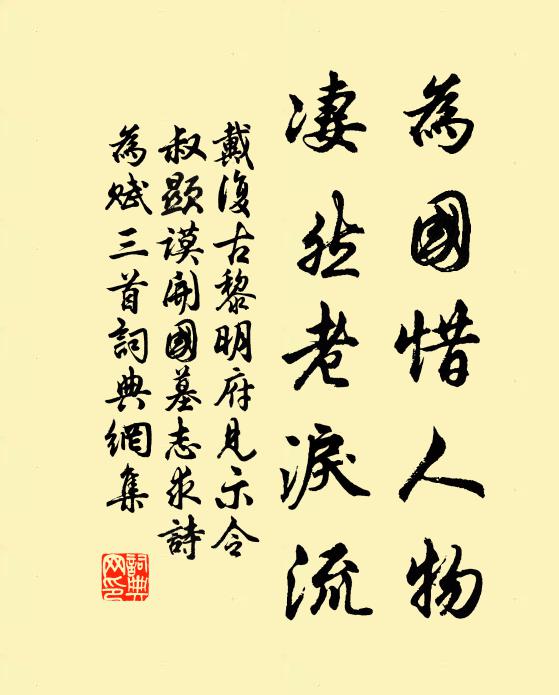 為國惜人物
淒然老淚流
戴復古黎明府見示令
叔顯謨開國墓志求詩
為賦三首詞典網集
詞典
网印